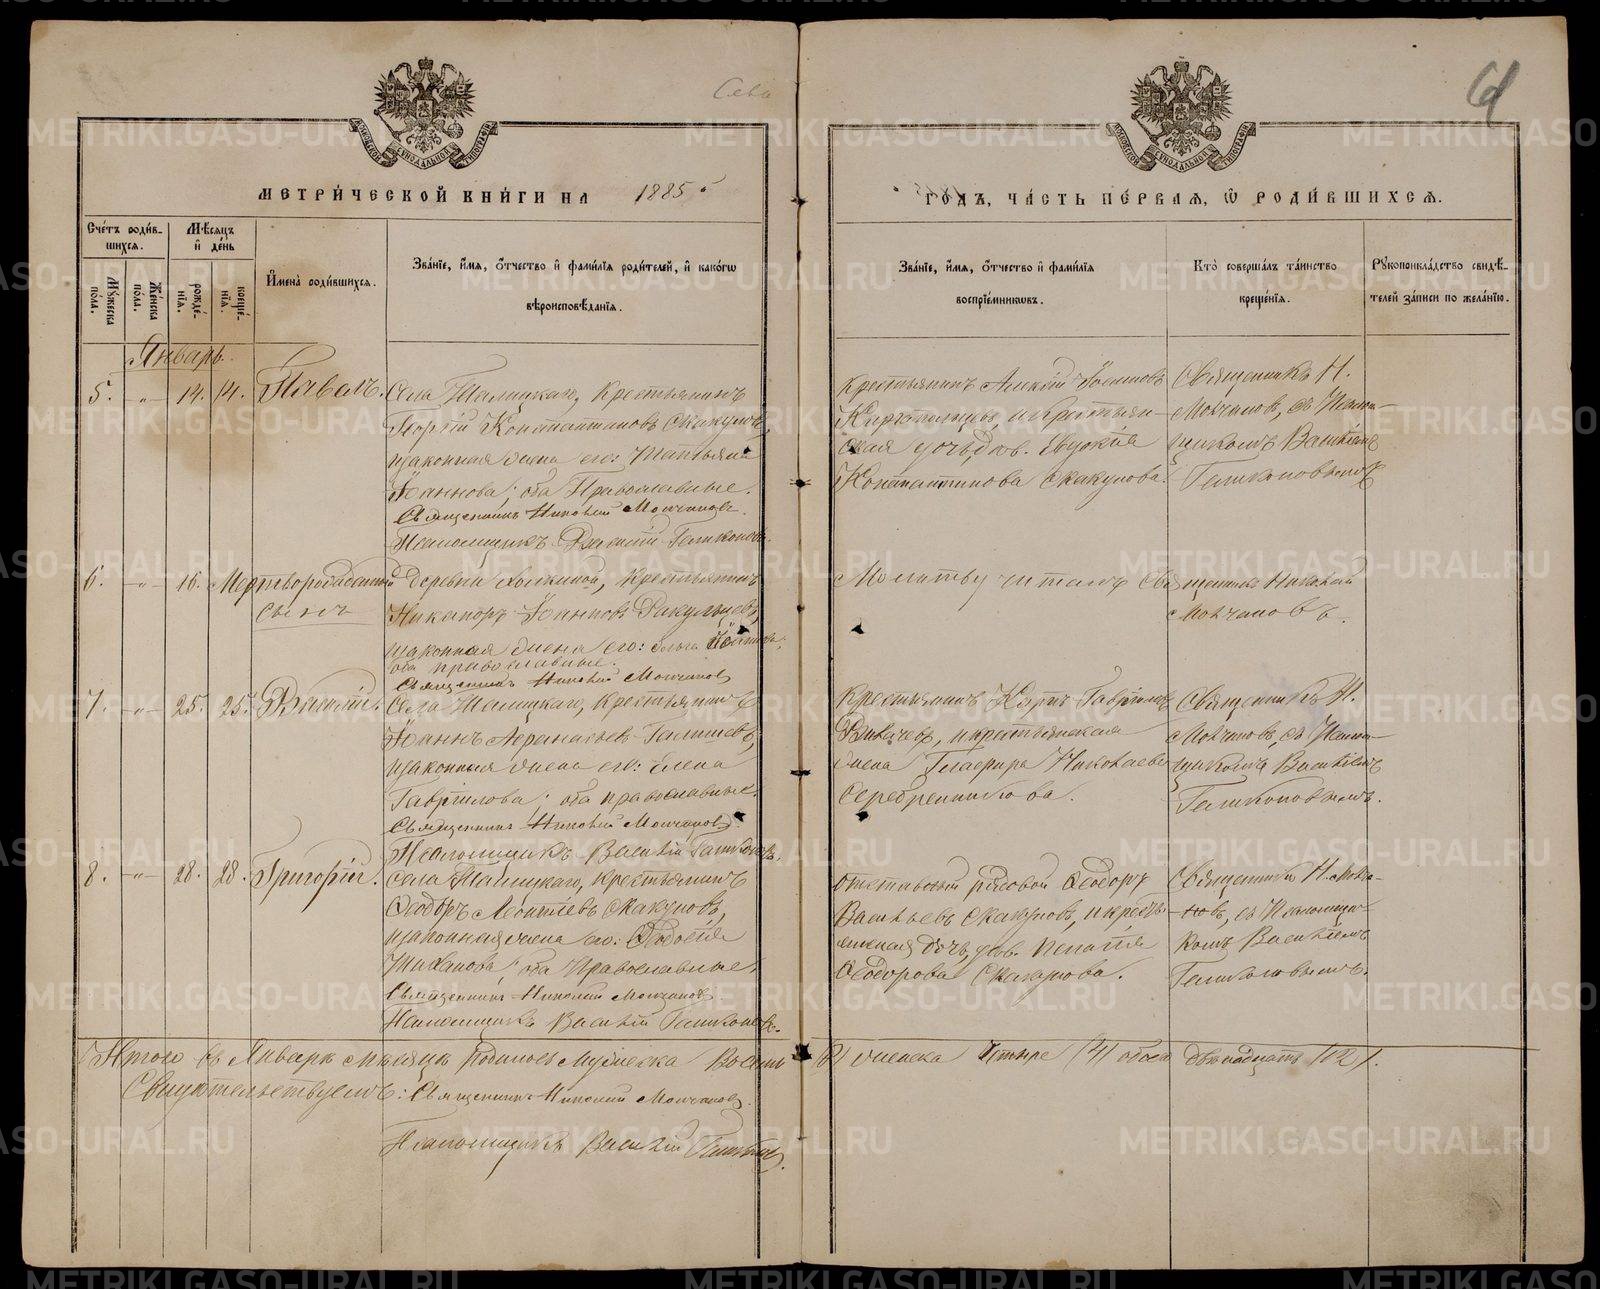 МЕТРИ́ЧЕСКОЙ КНИ́ГИ НА 1885
ГОДЪ, ЧА́СТЬ ПЕ́РВАЯ, Ѡ РОДИ́ВШИХСѦ.
Сче́тъ роди́в-
шихся.
Мѣ́сяцъ
и де́нь
Му́жеска
по́ла.
Же́нска
по́ла.
рожде́-
нїя.
креще́-
нїя.
И҆мена̀ роди́вшихся.
Зва́нїе, и҆́мя, ѻ҆́тчество и҆ фами́лїя роди́телей, и҆ како́гѡ
вѣроисповѣ́данїя.
Зва́нїе, и҆́мя, ѻ҆́тчество и҆ фами́лїя
воспрїе́мникѡвъ.
Кто̀ соверша́лъ та́инство
креще́нїя.
Рꙋкоприкла́дство свидѣ́-
телей за́писи по жела́нїю.
Январь.
5. -"- 14. 14. Павелъ.
Села Талицкаго, крестьянинъ
Георгій Константиновъ Скакуновъ,
законная жена его: Татьяна
Іоаннова; оба Православные.
Священникъ Николай Молчановъ.
Псаломщикъ Василій
Крестьянинъ Алексій
и крестьян-
ская дочь, дѣв. Евдокія
Константинова Скакунова.
Священникъ Н.
Молчановъ, съ Псалом-
щикомъ Василіемъ
6. -"- 16. Мертворожденный
сынъ
деревни крестьянинъ
Никаноръ Іоанновъ
законная жена его: Ольга
оба православные.
Священникъ Николай Молчановъ
Молитву читалъ Священникъ Николай
Молчановъ.
7. -"- 25. 25. Василій.
Села Талицкаго, крестьянинъ
Іоаннъ Аѳанасьевъ
законная жена его: Елена
Гавріилова; оба православные.
Священникъ Николай Молчановъ.
Псаломщикъ Василій
Крестьянинъ Гавріиловъ
и крестьянская
жена Глафира Николаева
Серебренникова.
Священникъ Н.
Молчановъ, съ Псалом-
щикомъ Василіемъ
8. -"- 28. 28. Григорій.
Села Талицкаго, крестьянинъ
Ѳеодоръ Леонтіевъ Скакуновъ,
законная жена его: Ѳеодосія
оба Православные.
Священникъ Николай Молчановъ.
Псаломщикъ Василій
Отставной рядовой Ѳеодоръ
Васильевъ Скакуновъ, и кресть-
янская дочь, дѣв. Пелагія
Ѳеодорова Скакунова.
Священникъ Н. Молча-
новъ, съ Псаломщи-
комъ Василіемъ
Итого въ Январѣ мѣсяцѣ родилось мужеска восемь (8) женска четыре (4) обоего двѣнадцать (12).
Свидѣтельствуемъ: Священникъ Николай Молчановъ.
Псаломщикъ Василій
METRIKI.GASO-URAL.RU